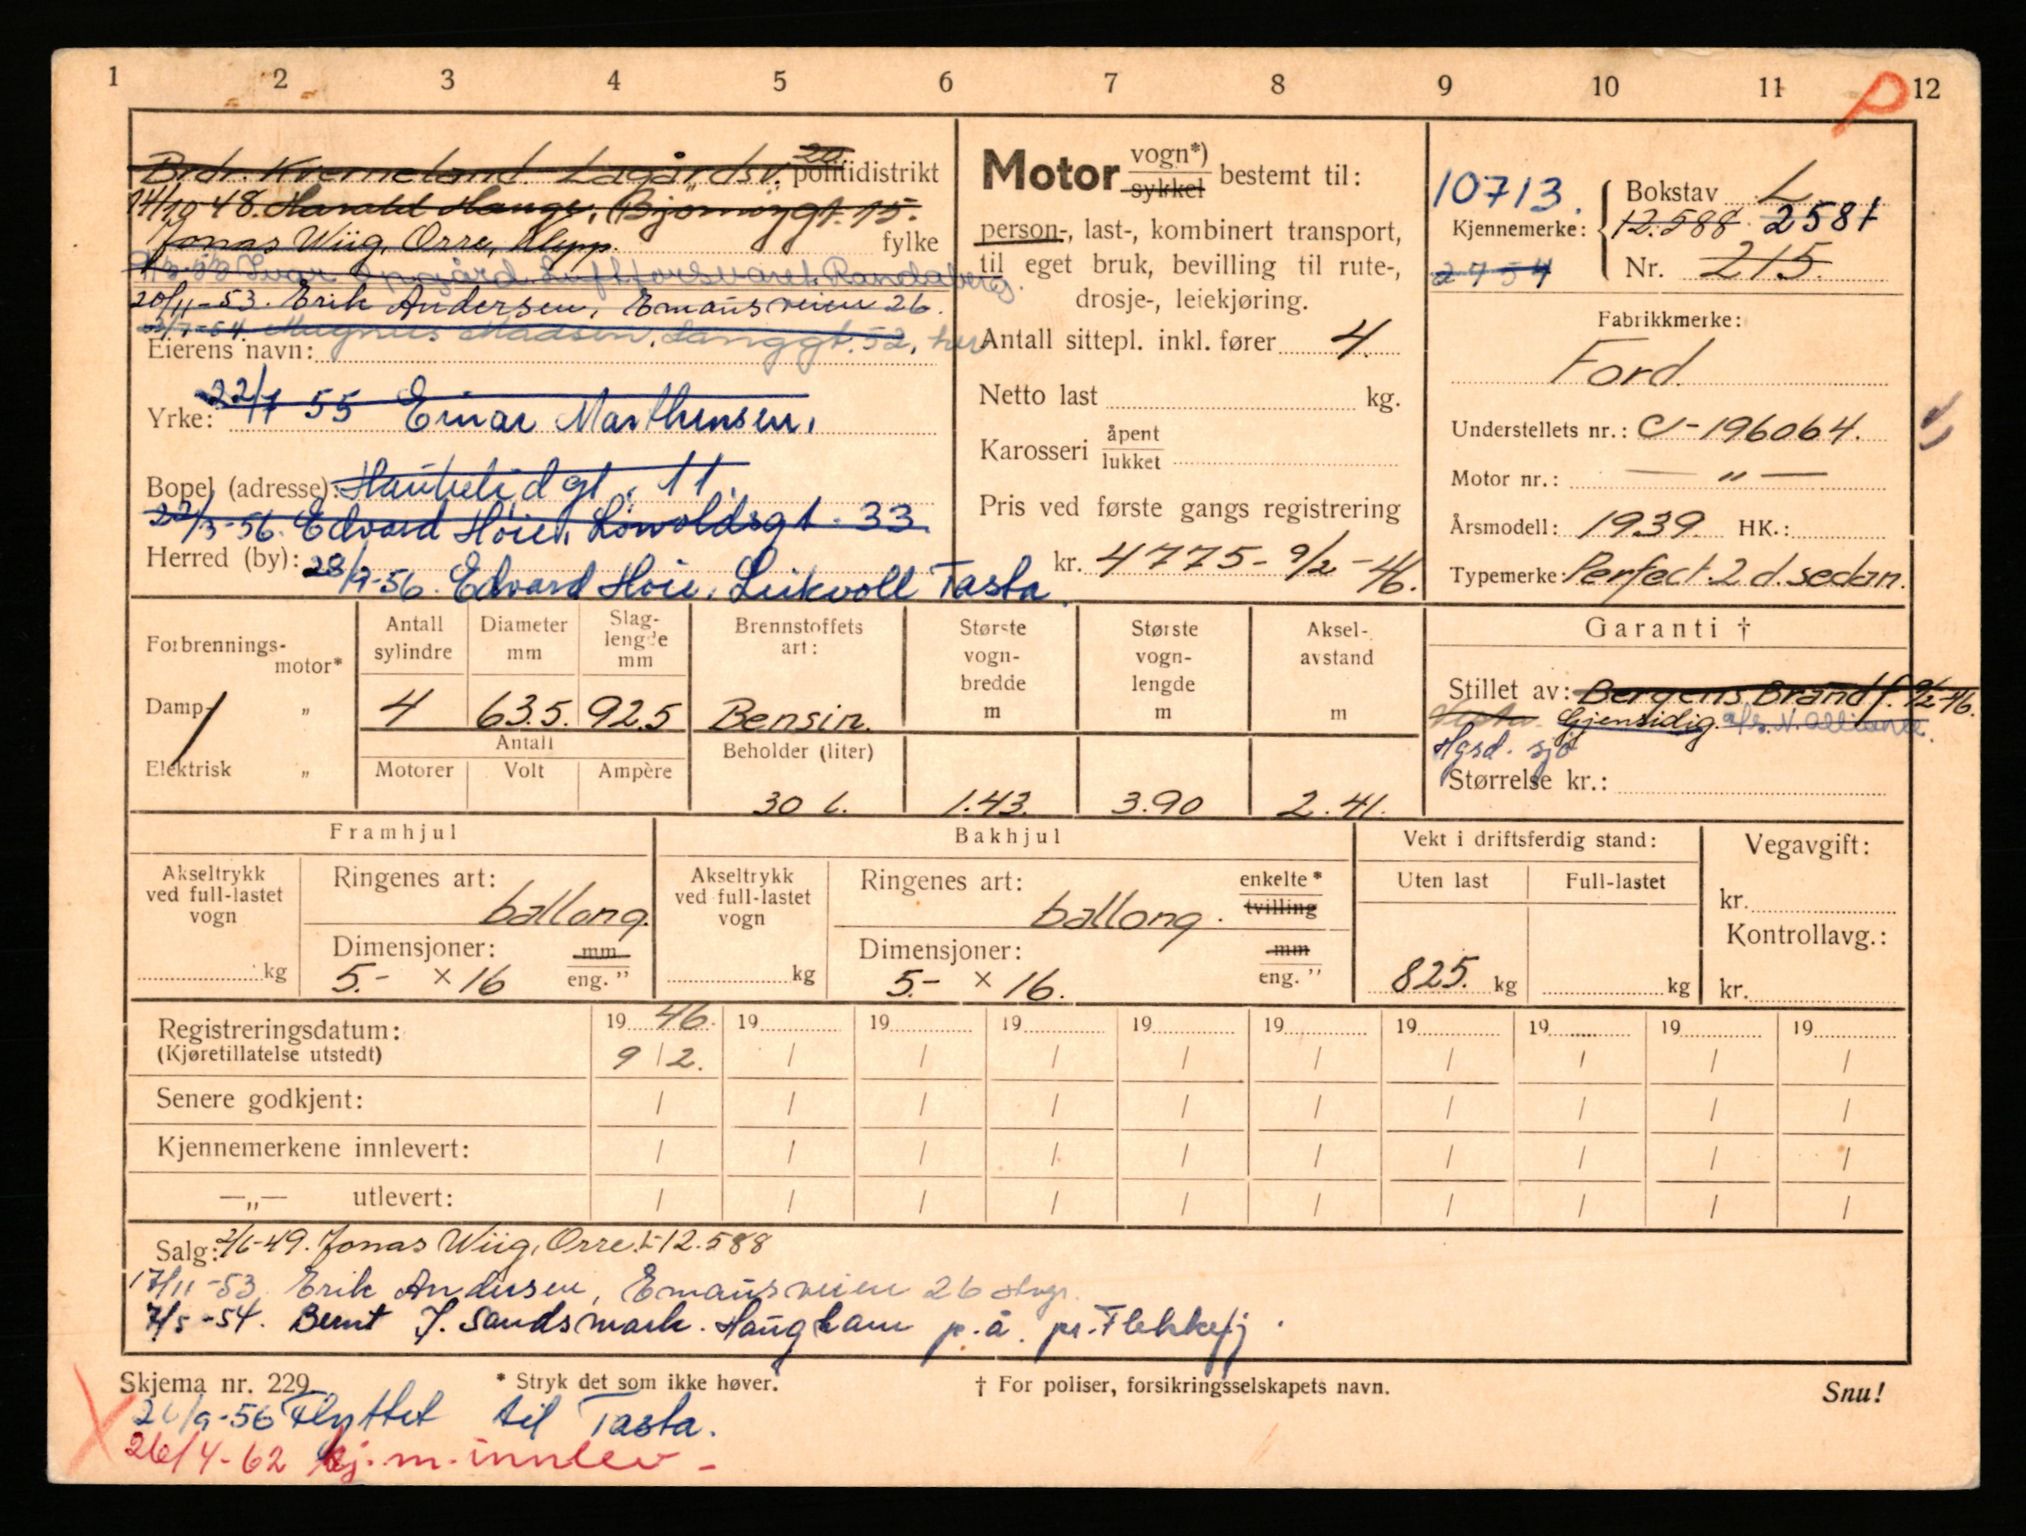 1 2 3 4 5 6 7 8 9 10 11 12
P
Brdr. Kverneland. Lagårdsv. 20 politidistrikt
14/10 48. Harald Hauge, (Bjørnøygt. 15.
Jonas Wiig, Orre, Klepp. fylke
Ivar Luftforsvaret Randaberg.
20/11-53. Erik Andersen, Emausveien 26.
Magnus Madsen, Langgt. 52, her
Eierens navn:
Yrke: 22/1 55 Einar Marthinsen,
Bopel (adresse): Haukelidgt. 11.
22/3-56. Edvard Høie, Løwoldsgt. 33
Herred (by): 28/9-56. Edvard Høie, Leikvoll Tasta.
Motor vogn*) sykkel bestemt til:
person-, last-, kombinert transport,
til eget bruk, bevilling til rute-,
drosje-, leiekjøring.
Antall sittepl. inkl. fører 4.
Netto last kg.
Karosseri åpent lukket
Pris ved første gangs registrering
kr. 4775- 9/2-46.
10713. Bokstav L
Kjennemerke: 12.588 2581
2754 Nr. 215.
Fabrikkmerke:
Ford.
Understellets nr.: C-196064.
Motor nr.: — " —
Årsmodell: 1939. HK.:
Typemerke: Perfect 2 d. sedan.
Forbrennings-motor*
Damp- „
Elektrisk „
Antall sylindre
4
Diameter mm
63.5.
Slag-lengde mm
92.5
Antall
Motorer Volt Ampère
Brennstoffets art:
Bensin.
Beholder (liter)
30 l.
Største vogn-bredde m
1.43.
Største vogn-lengde m
3.90
Aksel-avstand m
2.41.
Garanti †
Stillet av: Bergens Brand f. 9/2-46.
Vesta Gjensidig. N. Alliance.
Hgsd. sjø
Størrelse kr.:
Framhjul
Akseltrykk ved full-lastet vogn
kg
Ringenes art:
ballong.
Dimensjoner: mm
5.- × 16 eng. ”
Bakhjul
Akseltrykk ved full-lastet vogn
kg
Ringenes art: enkelte* tvilling
ballong.
Dimensjoner: mm
5.- × 16. eng. ”
Vekt i driftsferdig stand:
Uten last Full-lastet
825. kg kg
Vegavgift:
kr.
Kontrollavg.:
kr.
Registreringsdatum: 19 46. 19 19 19 19 19 19 19 19 19
(Kjøretillatelse utstedt) 9 / 2. / / / / / / / / /
Senere godkjent: / / / / / / / / / /
Kjennemerkene innlevert: / / / / / / / / / /
—„— utlevert: / / / / / / / / / /
Salg: 2/6-49. Jonas Wiig, Orre. L-12.588
17/11-53 Erik Andersen, Emausveien 26 Stvgr.
7/5-54. Bernt J. Sandsmark. Haugham p.å. pr. Flekkefj.
Skjema nr. 229. * Stryk det som ikke høver. † For poliser, forsikringsselskapets navn. Snu!
26/9-56 Flyttet til Tasta.
26/4-62 kj.m. innlev-